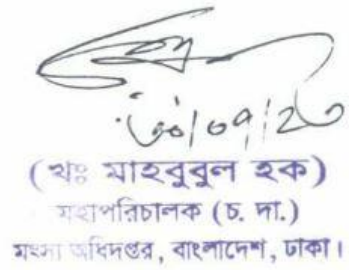 ৩০/০৭/২৩
(খঃ মাহবুবুল হক)
মহাপরিচালক (চ. দা.)
মৎস্য অধিদপ্তর, বাংলাদেশ, ঢাকা।